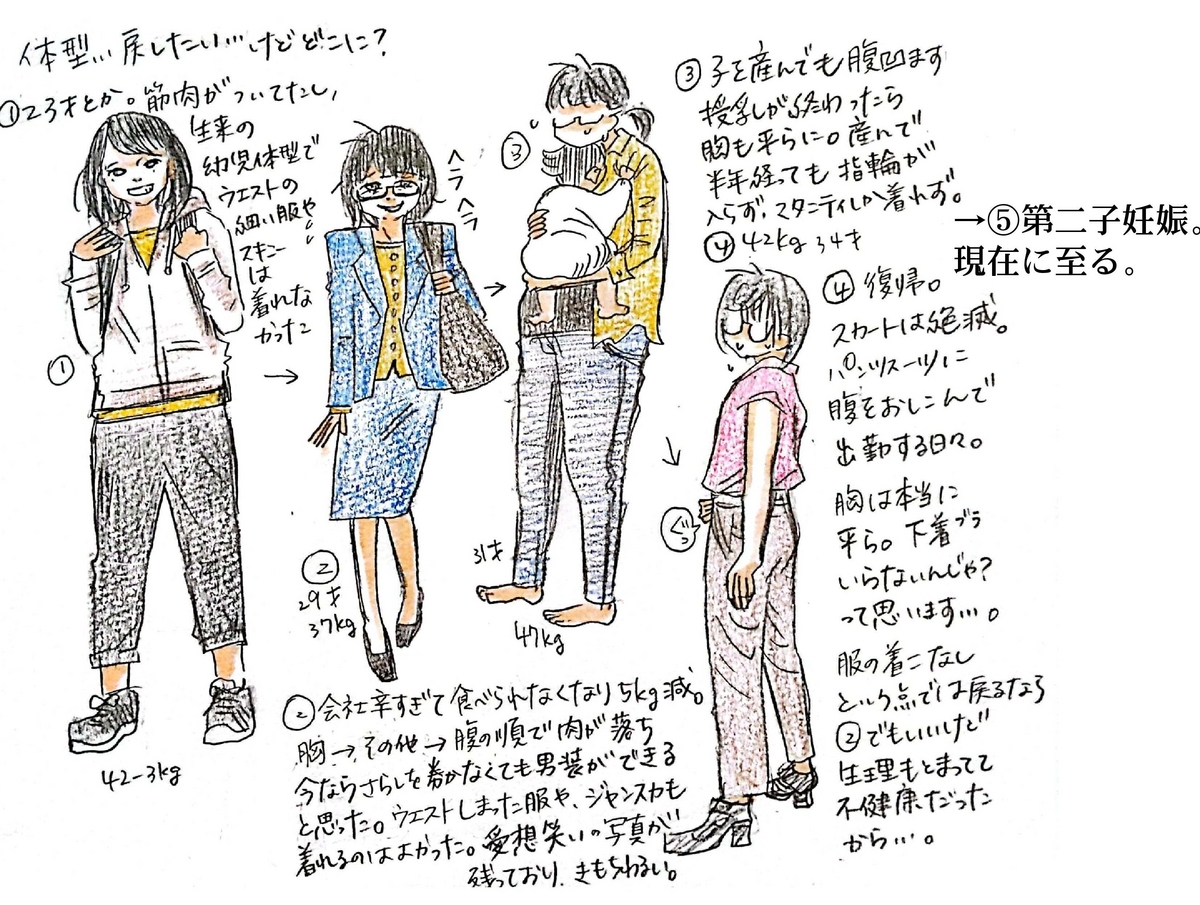 体型…戻したい…けどどこに？
①23才とか。筋肉がついてたし、
生来の
幼児体型で
ウエストの
細い服や
スキニー
は
着れな
かった
①
42-3kg
→
ヘラ
ヘラ
②
29才
37kg
②会社辛すぎて食べられなくなり5kg減。
胸→その他→腹の順で肉が落ち
今ならさらしを巻かなくても男装ができる
と思った。ウエストしまった服や、ジャンスカも
着れるのはよかった。愛想笑いの写真が
残っており、きもちわるい。
→
③
31才
47kg
③子を産んでも腹凹まず
授乳しが終わったら
胸も平らに。産んで
半年経っても指輪が
入らず、マタニティしか着れず。
→⑤第二子妊娠。
現在に至る。
↓
④42kg 34才
ぐっ
④復帰。
スカートは絶滅。
パンツスーツに
腹をおしこんで
出勤する日々。
胸は本当に
平ら。下着ブラ
いらないんじゃ？
って思います…。
服の着こなし
という点では戻るなら
②でもいいけど
生理もとまってて
不健康だった
から…。